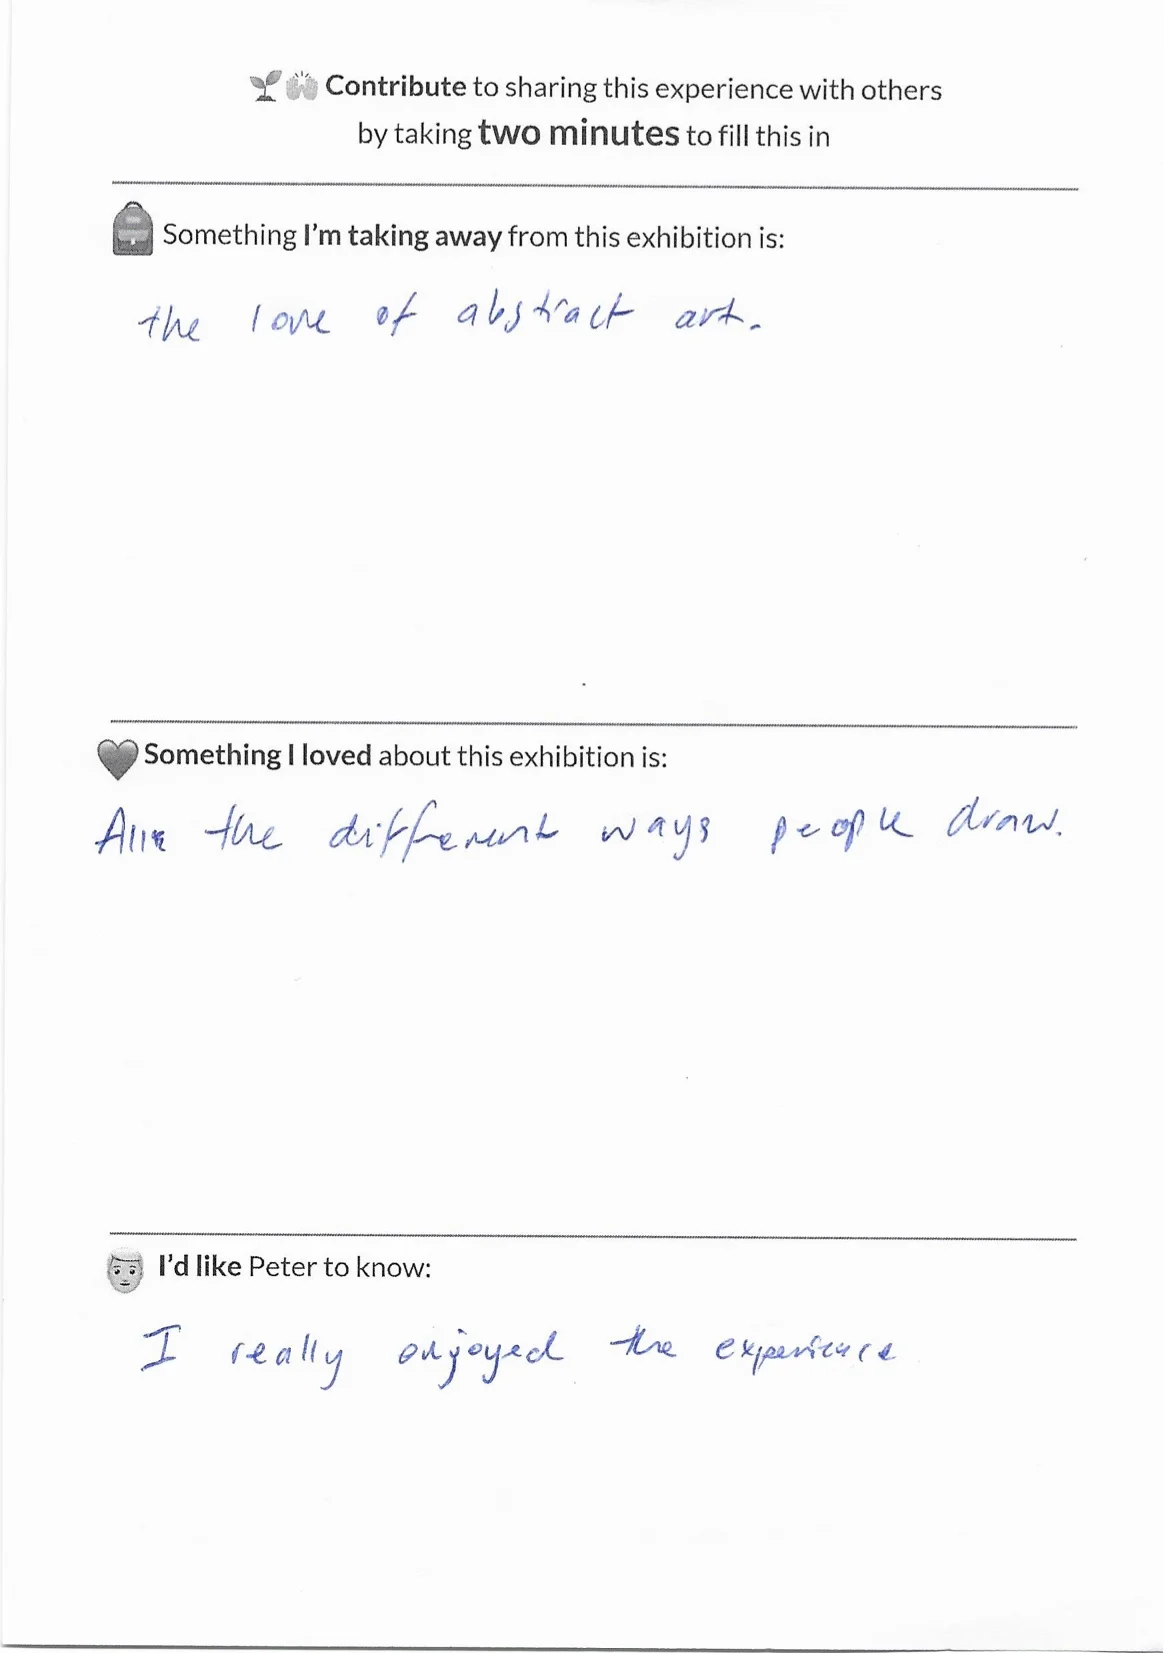 Contribute to sharing this experience with others
by taking two minutes to fill this in
Something I'm taking away from this exhibition is:
the love of abstract art.
Something I loved about this exhibition is:
the different ways people draw.
I'd like Peter to know:
I really enjoyed the experience